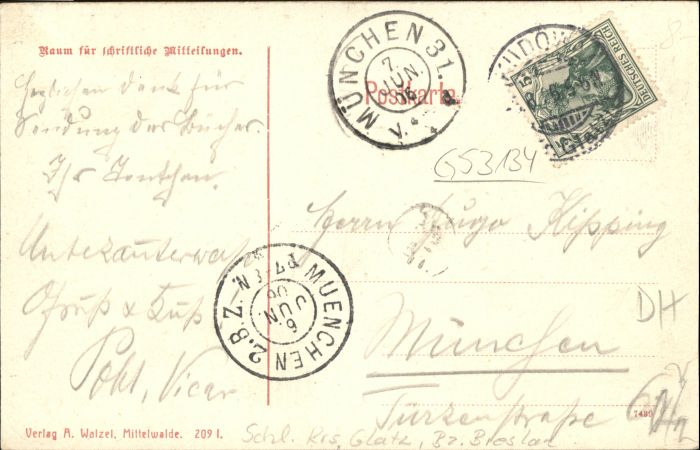 Raum für schriftliche Mitteilungen.
Herzlichen Dank für
Sendung der Bücher.
Gruß & Kuß
Pohl, Vicar
Verlag A. Walzel, Mittelwalde. 209 I.
MÜNCHEN 31.
7
JUN
06
V.
Postkarte.
DEUTSCHES REICH
5
GS3134
Herrn Hugo Kipping
München
Türkenstraße
MUENCHEN 2.B.Z.
6
JUN.
06
7-8 N.
DH
7489
Schl. Krs. Glatz, Bz. Breslau
8